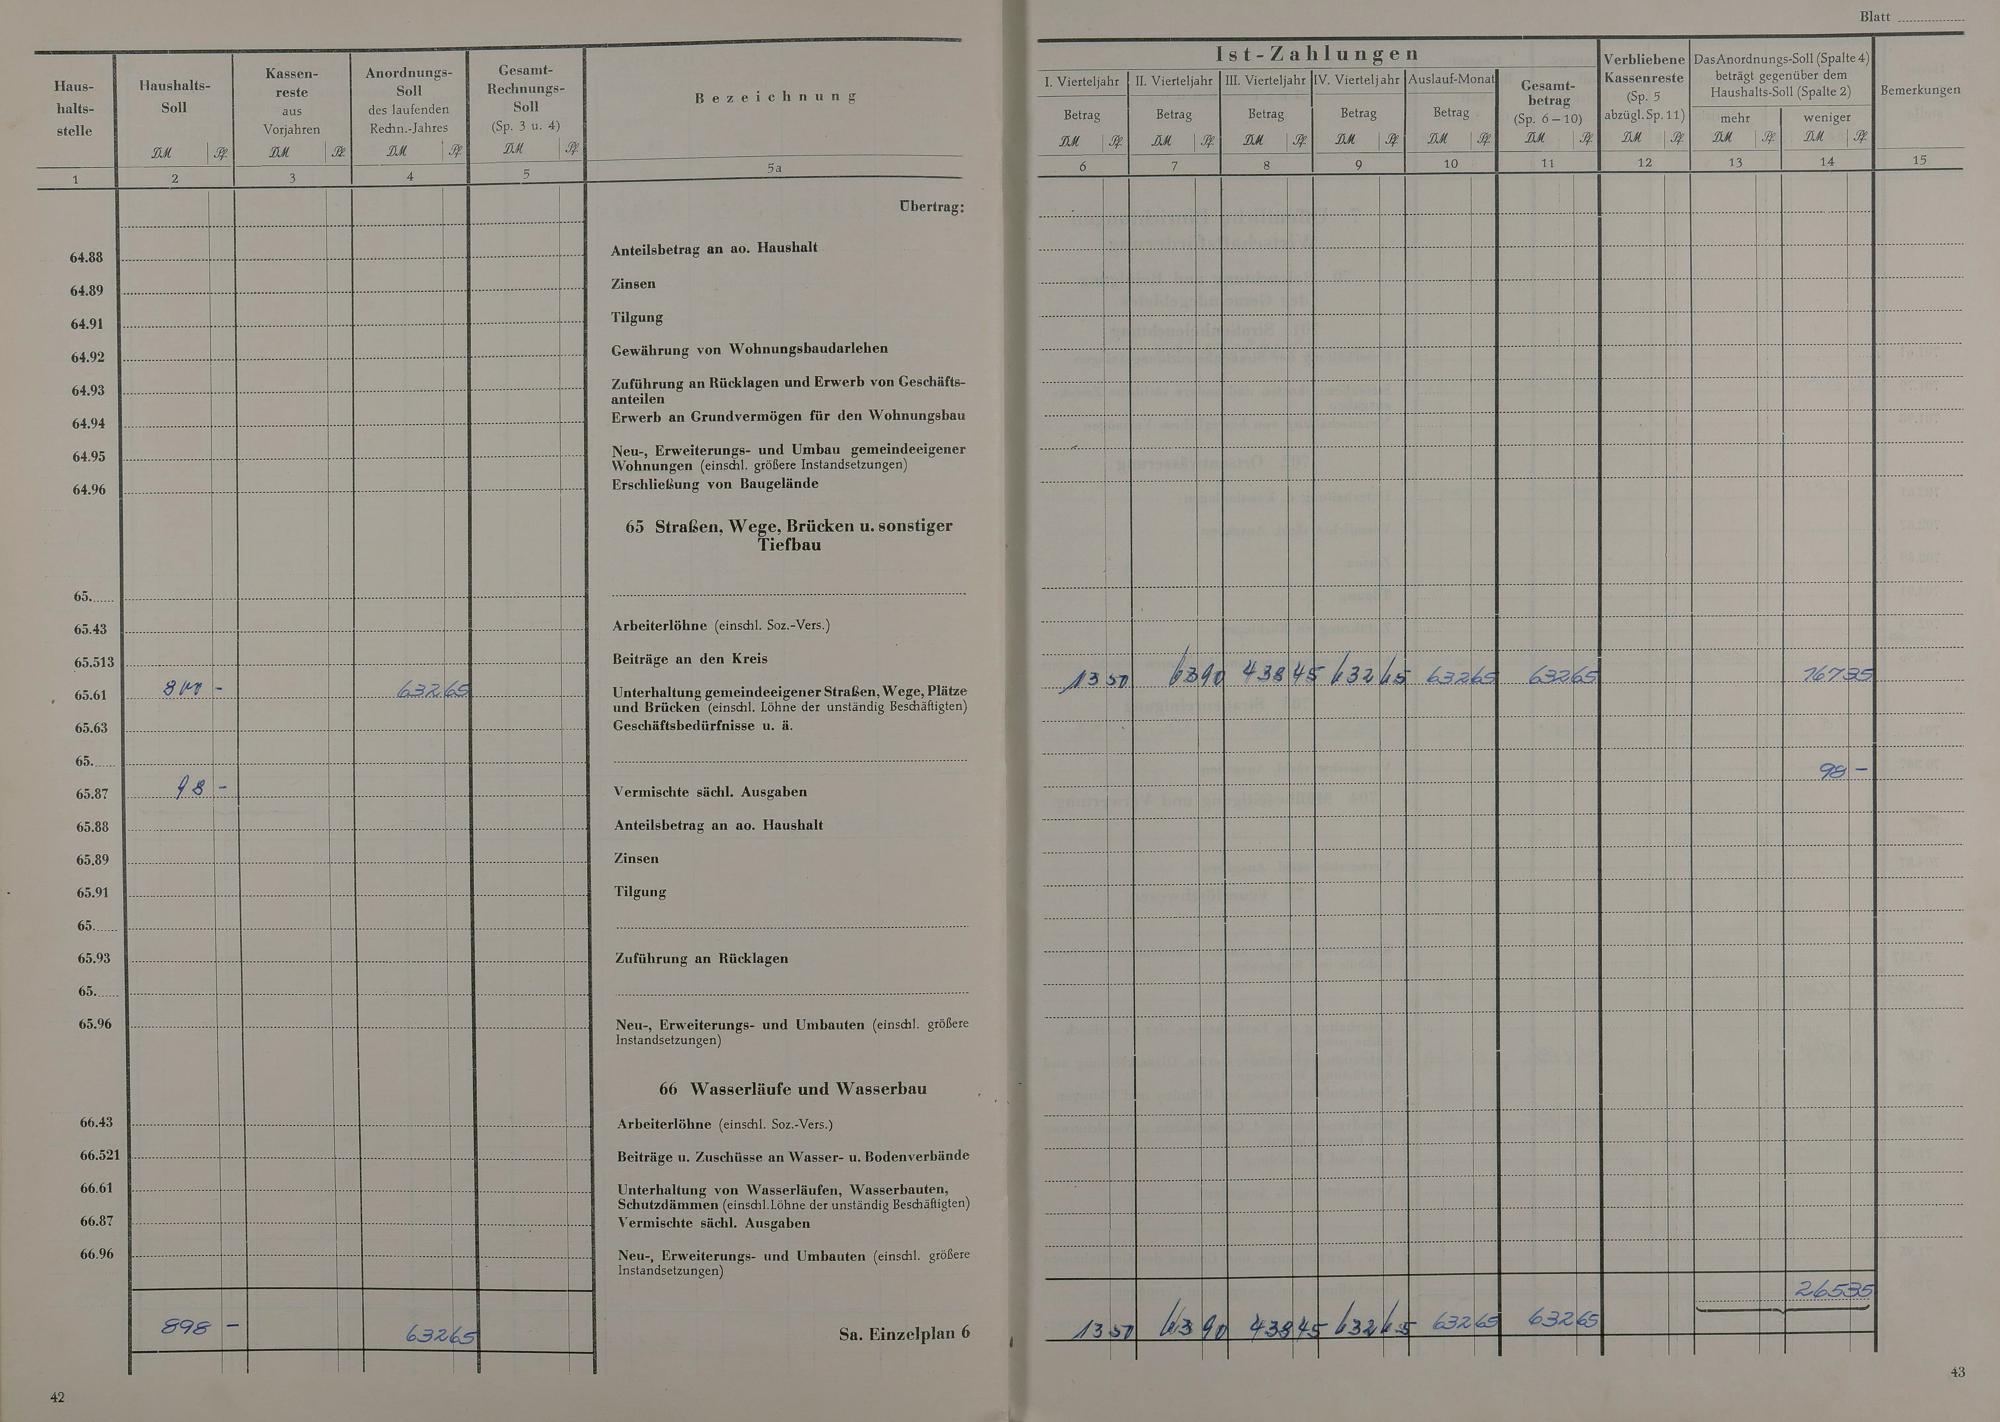 Blatt
Haus-
halts-
stelle
Haushalts-
Soll
DM Pf.
Kassen-
reste
aus
Vorjahren
DM Pf.
Anordnungs-
Soll
des laufenden
Rechn.-Jahres
DM Pf.
Gesamt-
Rechnungs-
Soll
(Sp. 3 u. 4)
DM Pf.
Bezeichnung
Ist-Zahlungen
I. Vierteljahr
Betrag
DM Pf.
II. Vierteljahr
Betrag
DM Pf.
III. Vierteljahr
Betrag
DM Pf.
IV. Vierteljahr
Betrag
DM Pf.
Auslauf-Monat
Betrag
DM Pf.
Gesamt-
betrag
(Sp. 6—10)
DM Pf.
Verbliebene
Kassenreste
(Sp. 5
abzügl. Sp. 11)
DM Pf.
Das Anordnungs-Soll (Spalte 4)
beträgt gegenüber dem
Haushalts-Soll (Spalte 2)
mehr
DM Pf.
weniger
DM Pf.
Bemerkungen
1 2 3 4 5 5a 6 7 8 9 10 11 12 13 14 15
Übertrag:
64.88 Anteilsbetrag an ao. Haushalt
64.89 Zinsen
64.91 Tilgung
64.92 Gewährung von Wohnungsbaudarlehen
64.93 Zuführung an Rücklagen und Erwerb von Geschäfts-
anteilen
64.94 Erwerb an Grundvermögen für den Wohnungsbau
64.95 Neu-, Erweiterungs- und Umbau gemeindeeigener
Wohnungen (einschl. größere Instandsetzungen)
64.96 Erschließung von Baugelände
65 Straßen, Wege, Brücken u. sonstiger
Tiefbau
65.
65.43 Arbeiterlöhne (einschl. Soz.-Vers.)
65.513 Beiträge an den Kreis
65.61 800 - 632 65 Unterhaltung gemeindeeigener Straßen, Wege, Plätze 13 50 63 90 438 45 632 65 632 65 632 65 167 35
und Brücken (einschl. Löhne der unständig Beschäftigten)
65.63 Geschäftsbedürfnisse u. ä.
65.
65.87 98 - Vermischte sächl. Ausgaben 98 -
65.88 Anteilsbetrag an ao. Haushalt
65.89 Zinsen
65.91 Tilgung
65.
65.93 Zuführung an Rücklagen
65.
65.96 Neu-, Erweiterungs- und Umbauten (einschl. größere
Instandsetzungen)
66 Wasserläufe und Wasserbau
66.43 Arbeiterlöhne (einschl. Soz.-Vers.)
66.521 Beiträge u. Zuschüsse an Wasser- u. Bodenverbände
66.61 Unterhaltung von Wasserläufen, Wasserbauten,
Schutzdämmen (einschl. Löhne der unständig Beschäftigten)
66.87 Vermischte sächl. Ausgaben
66.96 Neu-, Erweiterungs- und Umbauten (einschl. größere
Instandsetzungen)
265 35
898 - 632 65 Sa. Einzelplan 6 13 50 63 90 438 45 632 65 632 65 632 65
42
43